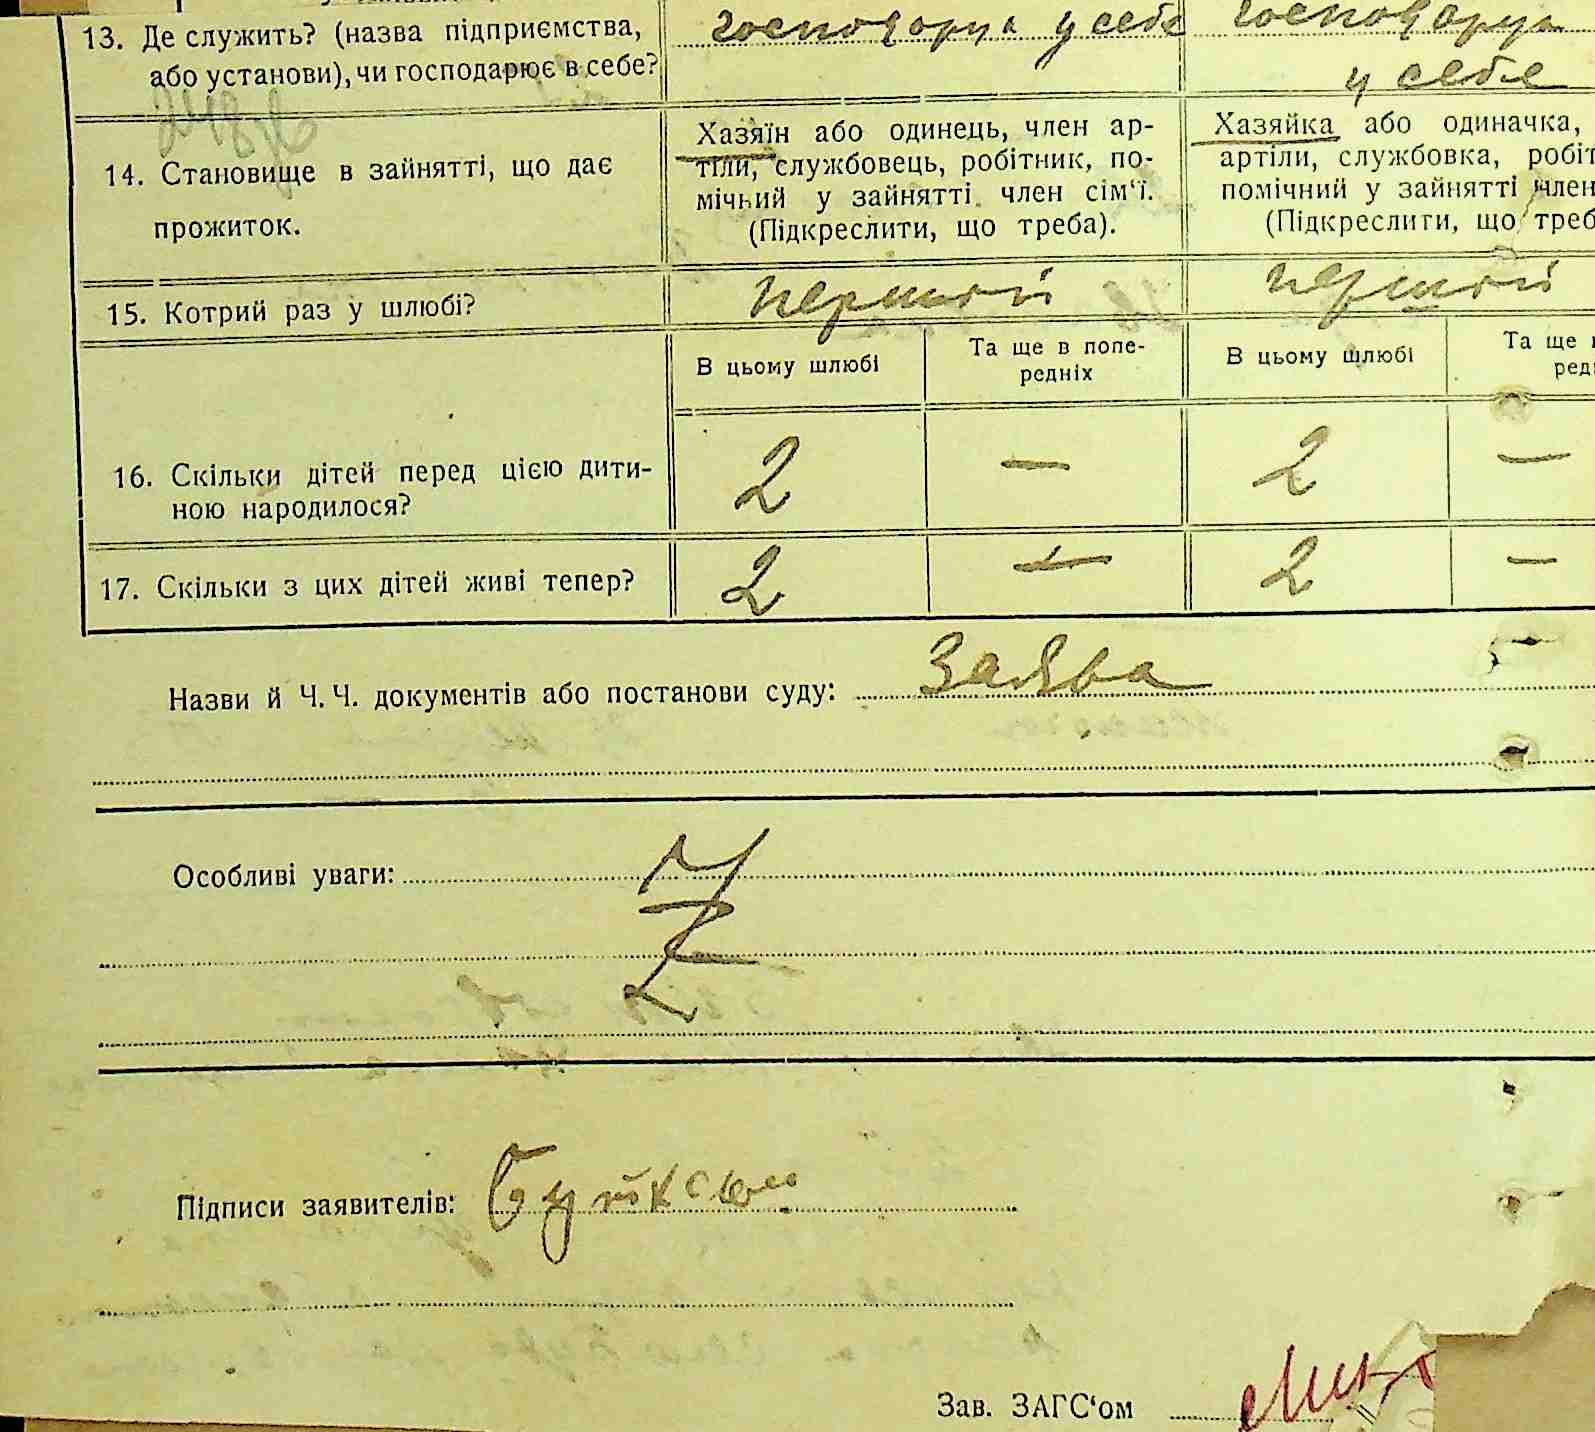 13. Де служить? (назва підприємства, або установи), чи господарює в себе?
господарує у себе
господарує у себе
14. Становище в зайнятті, що дає прожиток.
Хазяїн або одинець, член ар-
тіли, службовець, робітник, по-
мічний у зайнятті член сім‘ї.
(Підкреслити, що треба).
Хазяйка або одиначка,
артіли, службовка, робіт
помічний у зайнятті член
(Підкреслити, що треб
15. Котрий раз у шлюбі?
першой
першой
В цьому шлюбі
Та ще в попе-
редніх
В цьому шлюбі
Та ще
ред
16. Скільки дітей перед цією дити-
ною народилося?
2 — 2 —
17. Скільки з цих дітей живі тепер?
2 — 2 —
Назви й Ч. Ч. документів або постанови суду: Заява
Особливі уваги:
Підписи заявителів:
Зав. ЗАГС‘ом